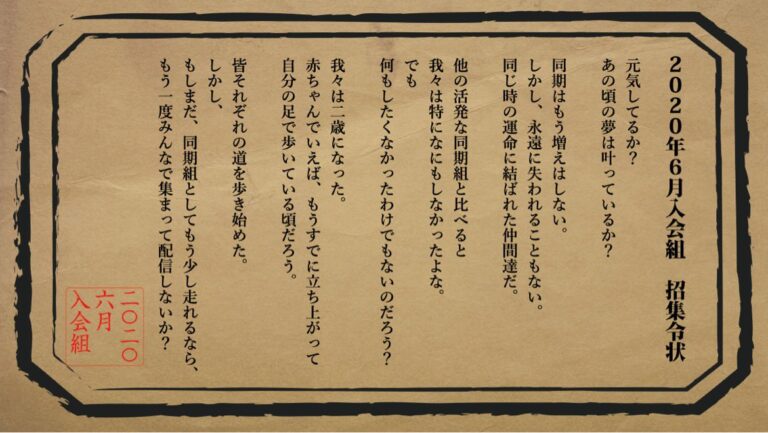 2020年6月入会組　招集令状
元気してるか？
あの頃の夢は叶っているか？
同期はもう増えはしない。
しかし、永遠に失われることもない。
同じ時の運命に結ばれた仲間達だ。
他の活発な同期組と比べると
我々は特になにもしなかったよな。
でも
何もしたくなかったわけでもないのだろう？
我々は二歳になった。
赤ちゃんでいえば、もうすでに立ち上がって
自分の足で歩いている頃だろう。
皆それぞれの道を歩き始めた。
しかし、
もしまだ、同期組としてもう少し走れるなら、
もう一度みんなで集まって配信しないか？
二〇二〇
六月
入会組